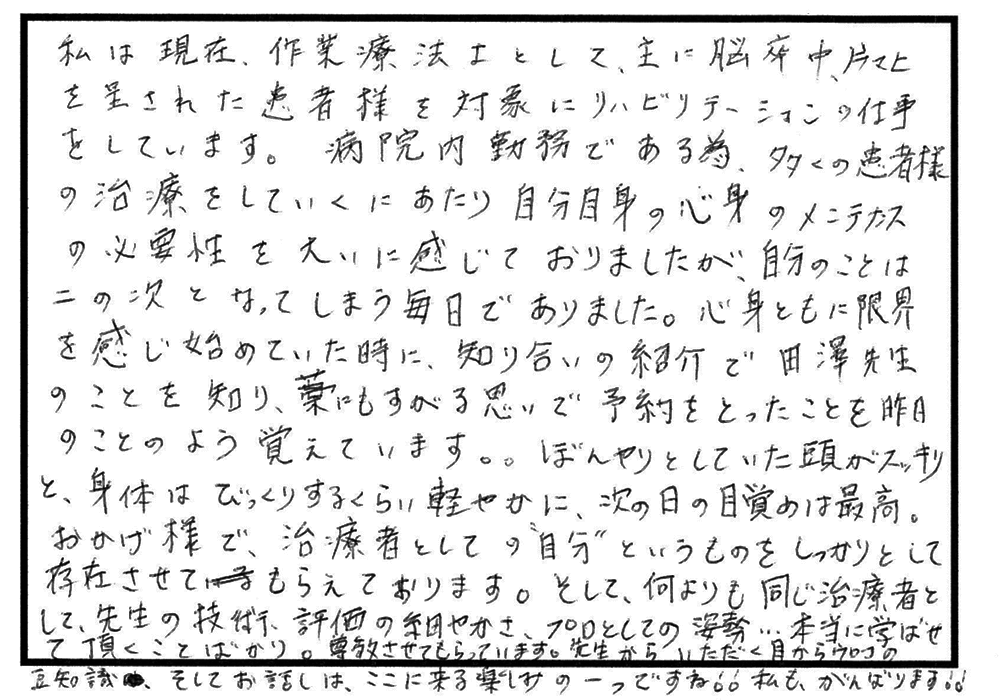 私は現在、作業療法士として、主に脳卒中、片マヒ
を呈された患者様を対象にリハビリテーションの仕事
をしています。 病院内勤務である為、多くの患者様
の治療をしていくにあたり自分自身の心身のメンテナンス
の必要性を大いに感じておりましたが、自分のことは
二の次となってしまう毎日でありました。心身ともに限界
を感じ始めていた時に、知り合いの紹介で田澤先生
のことを知り、藁にもすがる思いで予約をとったことを昨日
のことのよう覚えています。。ぼんやりとしていた頭がスッキリ
と、身体はびっくりするくらい軽やかに、次の日の目覚めは最高。
おかげ様で、治療者としての"自分"というものをしっかりとして
存在させてもらえております。そして、何よりも同じ治療者と
して、先生の技術、評価の細やかさ、プロとしての姿勢…本当に学ばせ
て頂くことばかり。尊敬させてもらっています。先生からいただく目からウロコの
豆知識、そしてお話しは、ここに来る楽しみの一つですね!!私も、がんばります!!